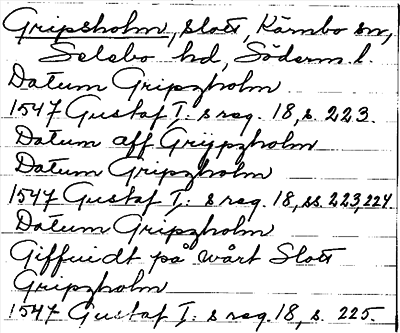 Gripsholm, slott, Kärnbo sn,
Selebo hd, Söderm. l.
Datum Gripzholm
1547 Gustaf I:s reg. 18, s. 223.
Datum aff Grijpzholm
Datum Gripzholm
1547 Gustaf I:s reg. 18, ss. 223, 224
Datum Gripzholm
Giffuidt på wårt Slott
Gripzholm
1547 Gustaf I:s reg. 18, s. 225.